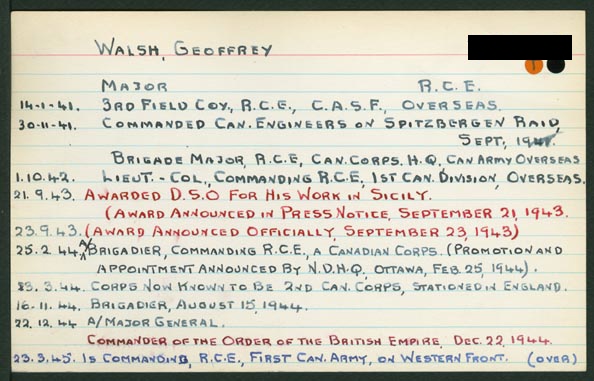 WALSH, GEOFFREY
MAJOR R.C.E.
14-1-41. 3RD FIELD COY., R.C.E., C.A.S.F., OVERSEAS.
30-11-41. COMMANDED CAN. ENGINEERS ON SPITZBERGEN RAID,
SEPT, 1941.
BRIGADE MAJOR, R.C.E, CAN. CORPS. H.Q, CAN ARMY OVERSEAS
1.10.42. LIEUT.-COL., COMMANDING R.C.E, 1ST CAN. DIVISION, OVERSEAS.
21.9.43. AWARDED D.S.O FOR HIS WORK IN SICILY.
(AWARD ANNOUNCED IN PRESS NOTICE, SEPTEMBER 21, 1943.
23.9.43. (AWARD ANNOUNCED OFFICIALLY, SEPTEMBER 23, 1943)
25.2.44. A/BRIGADIER, COMMANDING R.C.E., A CANADIAN CORPS. (PROMOTION AND
APPOINTMENT ANNOUNCED BY N.D.H.Q, OTTAWA, FEB. 25, 1944).
23.3.44. CORPS NOW KNOWN TO BE 2ND CAN. CORPS, STATIONED IN ENGLAND.
16-11.44. BRIGADIER, AUGUST 15, 1944.
22.12.44 A/MAJOR GENERAL.
COMMANDER OF THE ORDER OF THE BRITISH EMPIRE, DEC. 22, 1944.
23.3.45. IS COMMANDING, R.C.E., FIRST CAN. ARMY, ON WESTERN FRONT. (OVER)